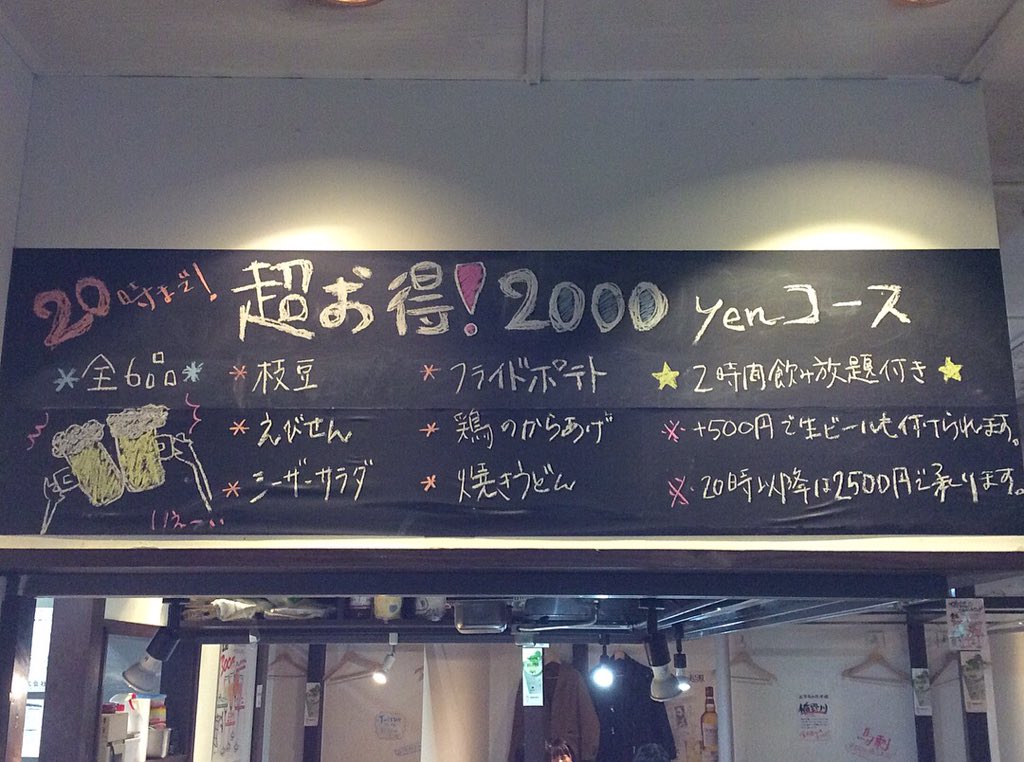 20時まで! 超お得! 2000 yenコース
*全6品* *枝豆 *フライドポテト ★2時間飲み放題付き★
*えびせん *鶏のからあげ ※+500円で生ビールも付けられます。
*シーザーサラダ *焼きうどん ※20時以降は2500円で承ります。
いぇーい